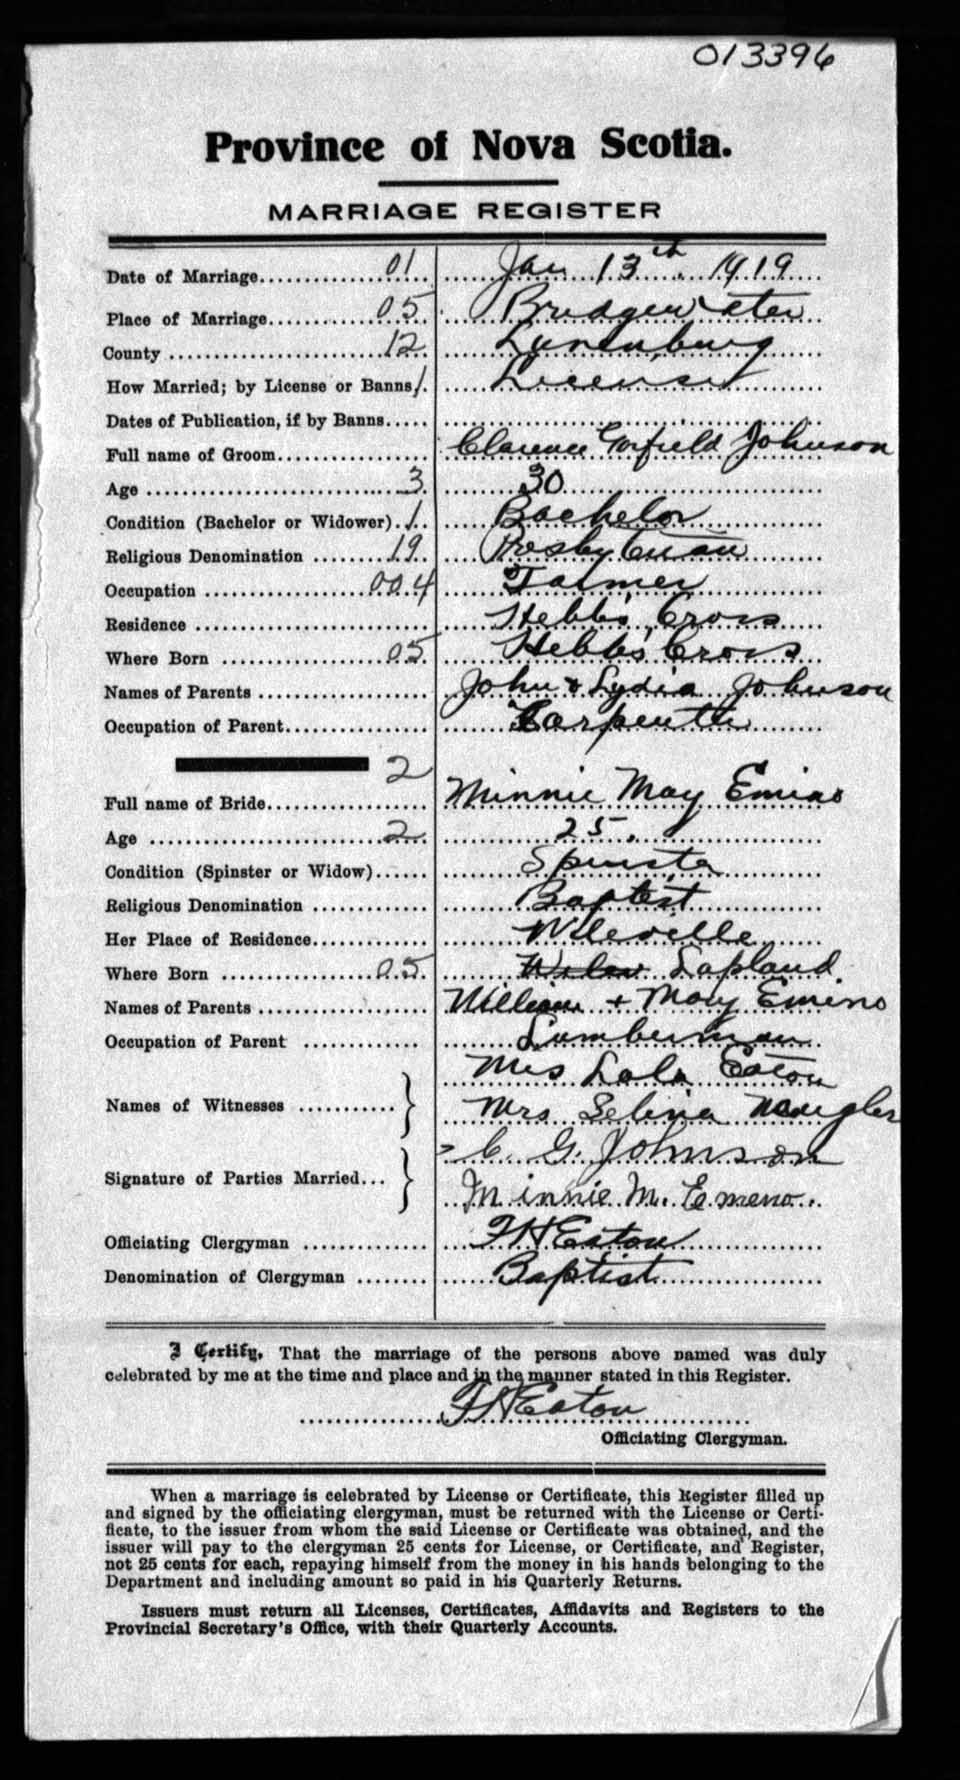 013396
Province of Nova Scotia.
MARRIAGE REGISTER
Date of Marriage 01 Jan 13th 1919
Place of Marriage 05 Bridgewater
County 12 Lunenburg
How Married; by License or Banns 1 License
Dates of Publication, if by Banns
Full name of Groom Clarence Garfield Johnson
Age 3 30
Condition (Bachelor or Widower) 1 Bachelor
Religious Denomination 19 Presbyterian
Occupation 004 Farmer
Residence Hebb's Cross
Where Born 05 Hebb's Cross
Names of Parents John & Lydia Johnson
Occupation of Parent Carpenter
2
Full name of Bride Minnie May Emino
Age 2 25.
Condition (Spinster or Widow) Spinster
Religious Denomination Baptist
Her Place of Residence Wileville
Where Born 05 Lapland
Names of Parents William + May Emino
Occupation of Parent Lumberman
Mrs Lola Eaton
Names of Witnesses
Mrs Selina
C. G. Johnson
Signature of Parties Married
Minnie M. Emeno.
Officiating Clergyman F H Eaton
Denomination of Clergyman Baptist
I Certify, That the marriage of the persons above named was duly
celebrated by me at the time and place and in the manner stated in this Register.
F H Eaton
Officiating Clergyman.
When a marriage is celebrated by License or Certificate, this Register filled up
and signed by the officiating clergyman, must be returned with the License or Certi-
ficate, to the issuer from whom the said License or Certificate was obtained, and the
issuer will pay to the clergyman 25 cents for License, or Certificate, and Register,
not 25 cents for each, repaying himself from the money in his hands belonging to the
Department and including amount so paid in his Quarterly Returns.
Issuers must return all Licenses, Certificates, Affidavits and Registers to the
Provincial Secretary's Office, with their Quarterly Accounts.